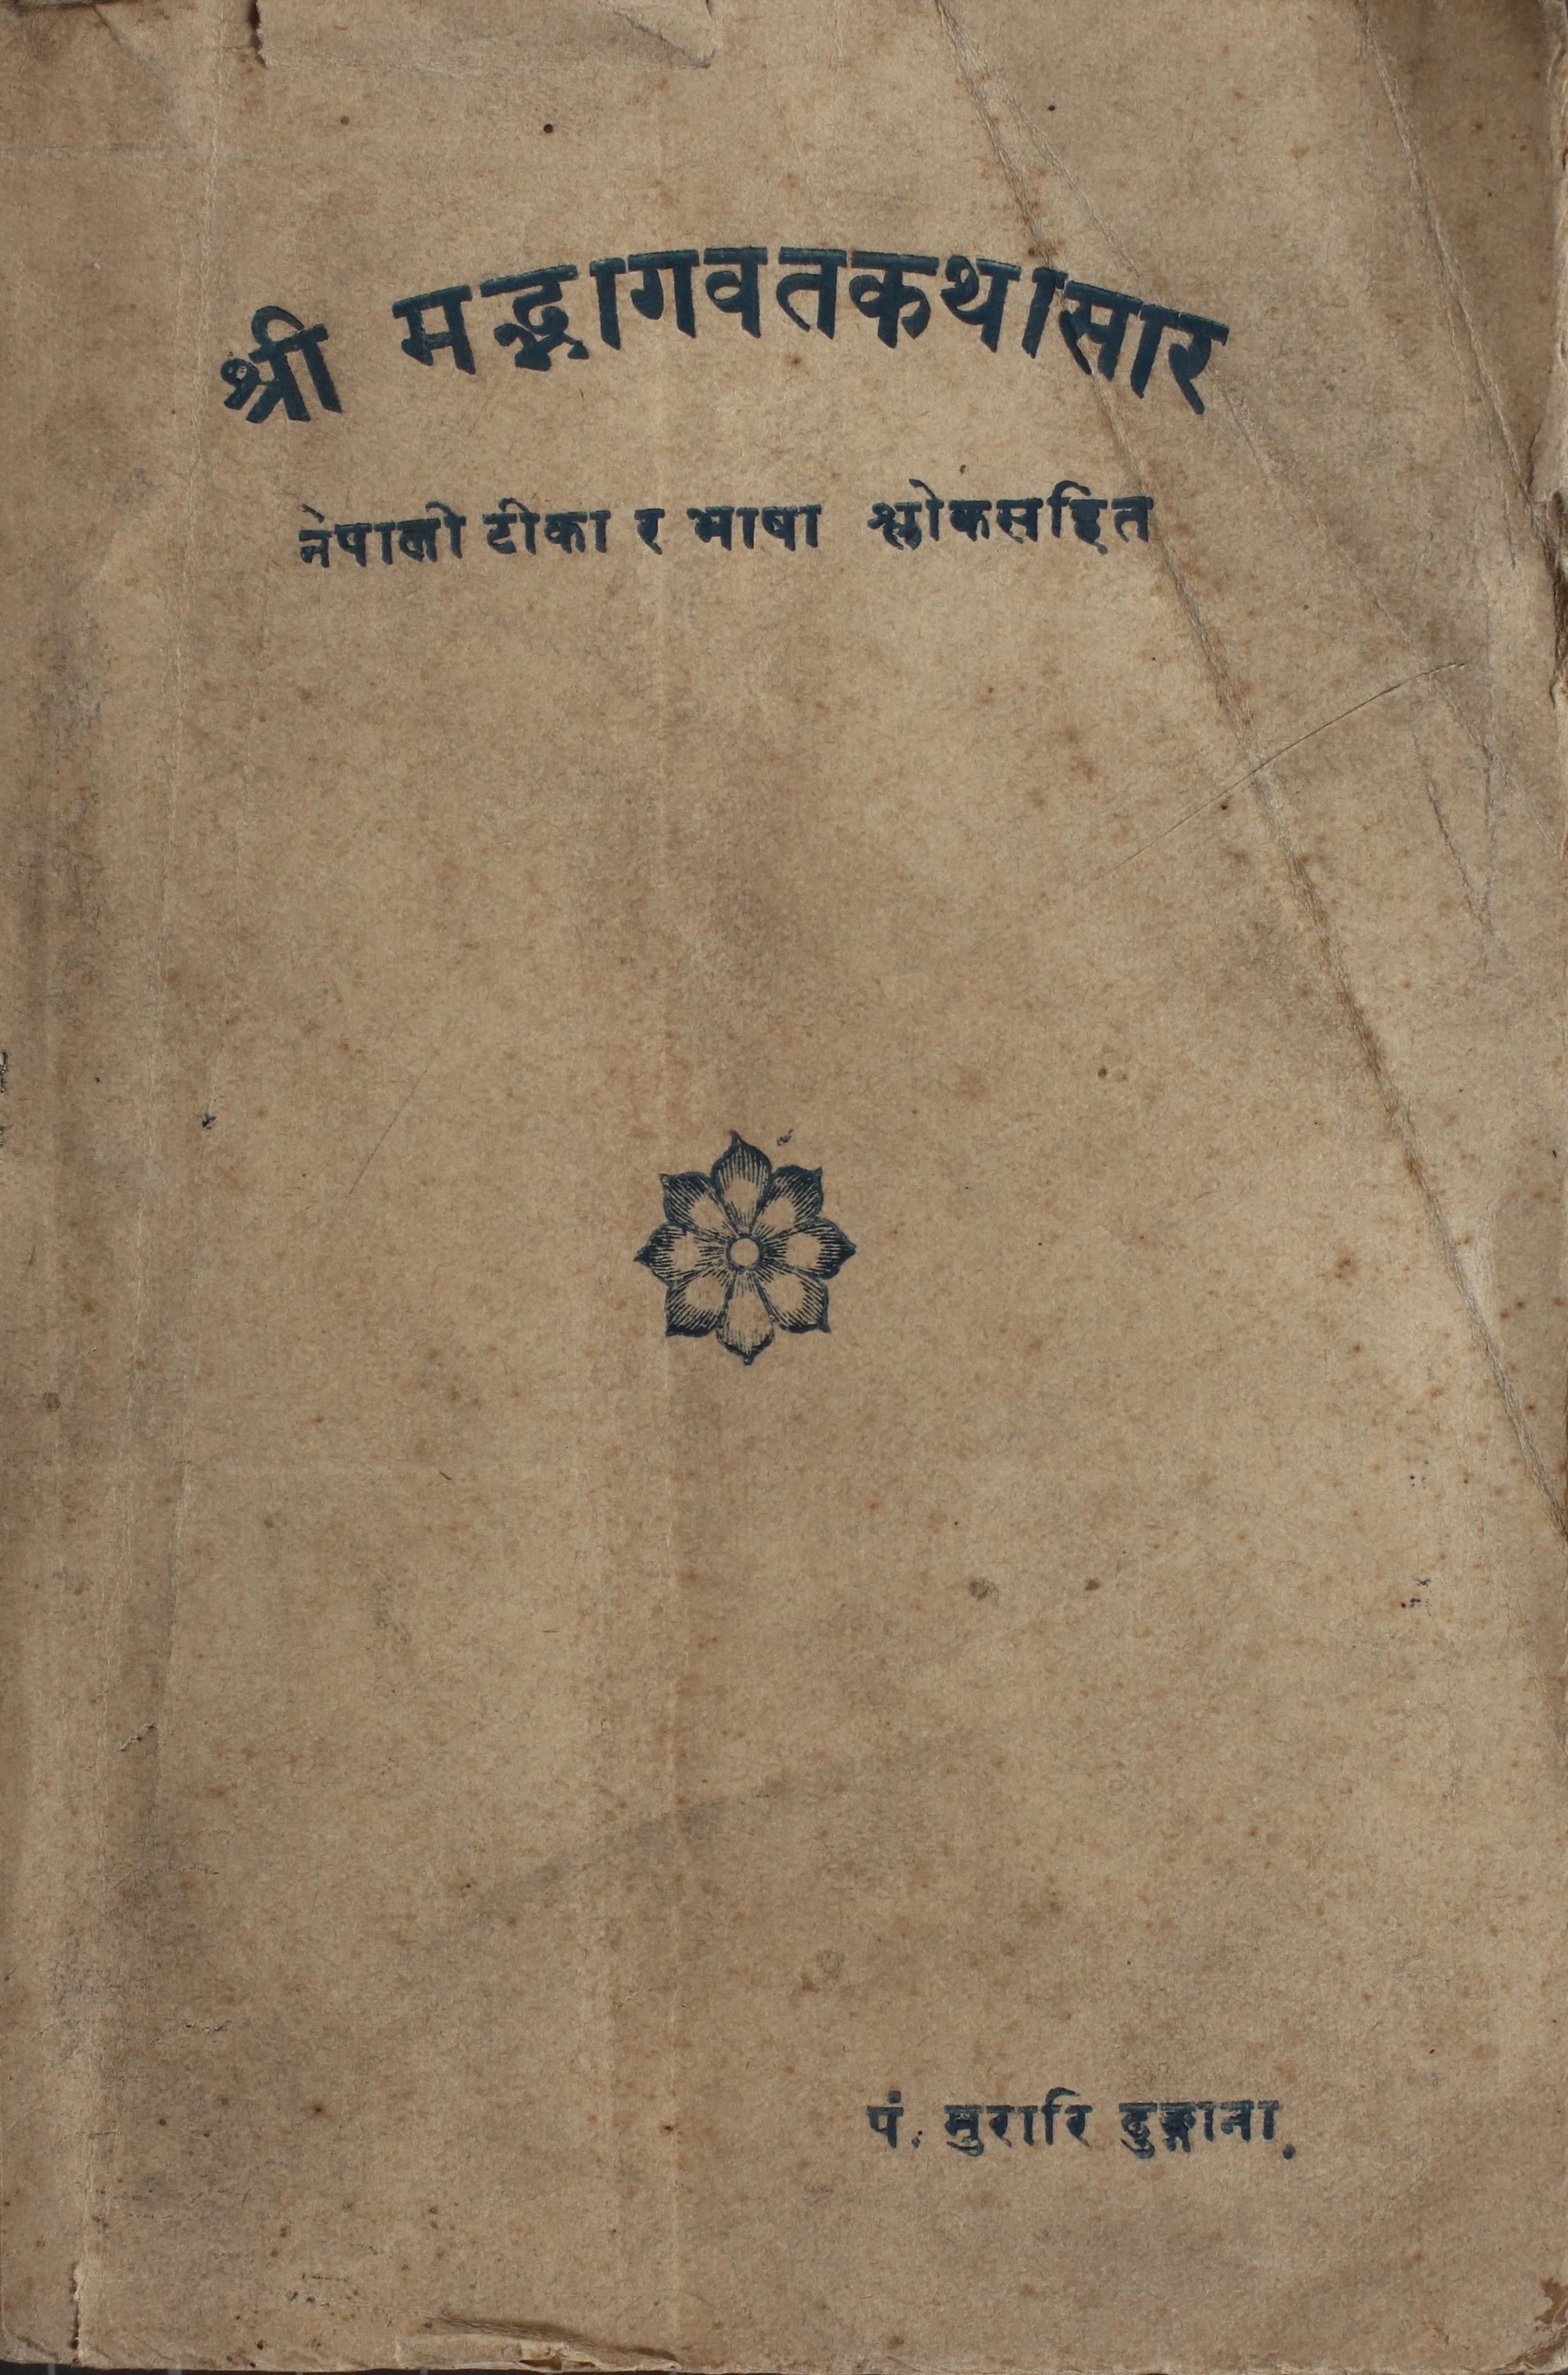 श्री मद्भागवतकथासार
नेपाली टीका र भाषा श्लोकसहित
पं. मुरारि ढुङ्गाना